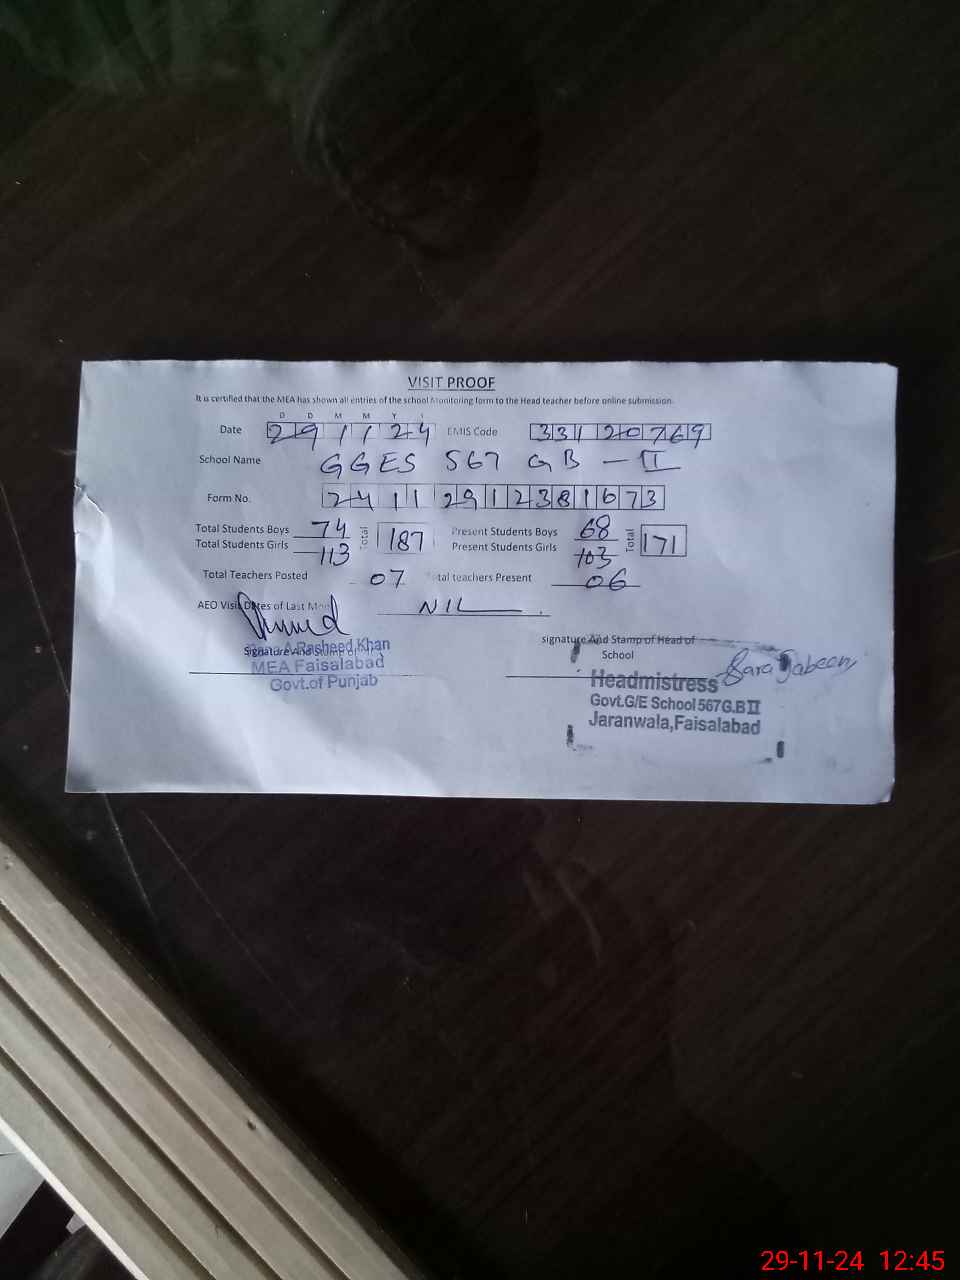 VISIT PROOF
It is certified that the MEA has shown all entries of the school Monitoring form to the Head teacher before online submission.
D D M M Y
Date 291124 EMIS Code 33120769
School Name GGES 567 GB - II
Form No. 24112912381673
Total Students Boys 74 Total 187 Present Students Boys 68 Total 171
Total Students Girls 113 Present Students Girls 103
Total Teachers Posted 07 Total teachers Present 06
AEO Visit Dates of Last Mon NIL
Signature And Stamp of
A.Rasheed Khan
MEA Faisalabad
Govt.of Punjab
signature And Stamp of Head of
School
Sara Jabeen
Headmistress
Govt.G/E School 567G.B II
Jaranwala,Faisalabad
29-11-24 12:45